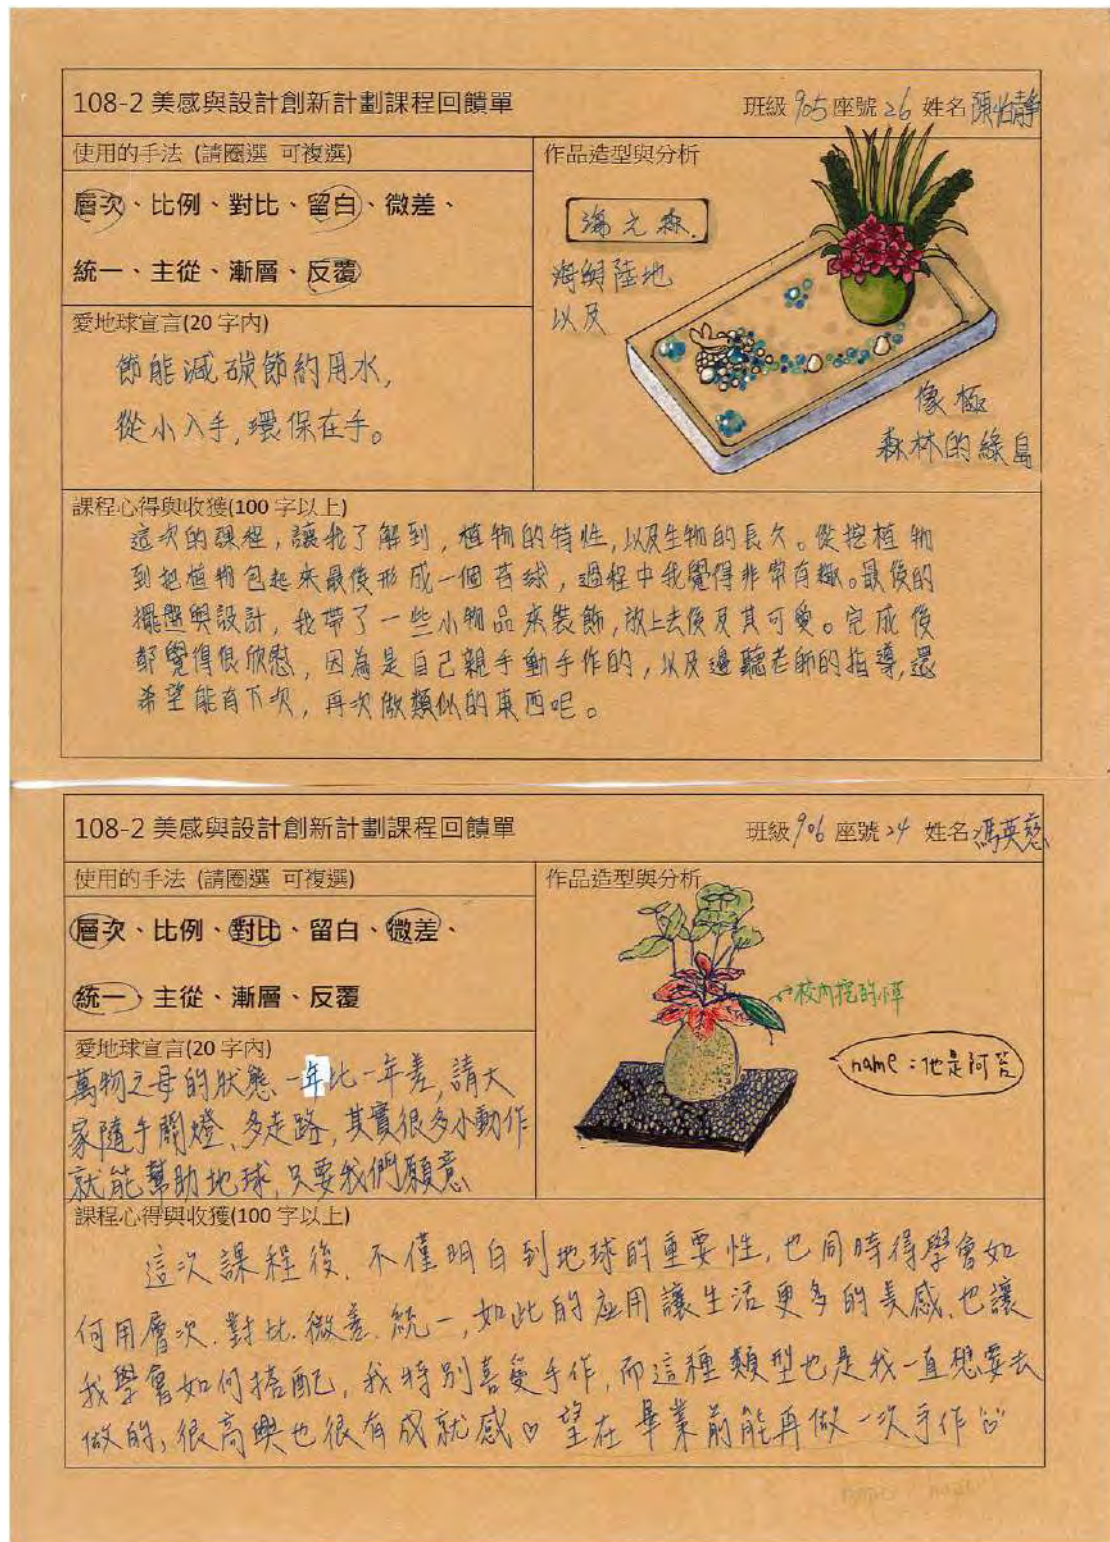 108-2 美感與設計創新計劃課程回饋單
班級 905 座號 26 姓名 陳怡靜
使用的手法 (請圈選 可複選)
層次、比例、對比、留白、微差、
統一、主從、漸層、反覆
愛地球宣言(20 字內)
節能減碳節約用水,
從小入手,環保在手。
作品造型與分析
海之森.
海與陸地
以及
像極
森林的綠島
課程心得與收獲(100 字以上)
這次的課程,讓我了解到,植物的特性,以及生物的長久。從挖植物
到把植物包起來最後形成一個苔球,過程中我覺得非常有趣。最後的
擺盤與設計,我帶了一些小物品來裝飾,放上去後及其可愛。完成後
都覺得很欣慰,因為是自己親手動手作的,以及邊聽老師的指導,還
希望能有下次,再次做類似的東西呢。
108-2 美感與設計創新計劃課程回饋單
班級 906 座號 24 姓名 馮英慈
使用的手法 (請圈選 可複選)
層次、比例、對比、留白、微差、
統一、主從、漸層、反覆
愛地球宣言(20 字內)
萬物之母的狀態一年比一年差,請大
家隨手關燈、多走路,其實很多小動作
就能幫助地球,只要我們願意
作品造型與分析
校內挖的小草
name:他是阿苔
課程心得與收獲(100 字以上)
這次課程後,不僅明白到地球的重要性,也同時得學會如
何用層次.對比.微差.統一,如此的应用讓生活更多的美感,也讓
我學會如何搭配,我特別喜愛手作,而這種類型也是我一直想要去
做的,很高興也很有成就感♡望在畢業前能再做一次手作